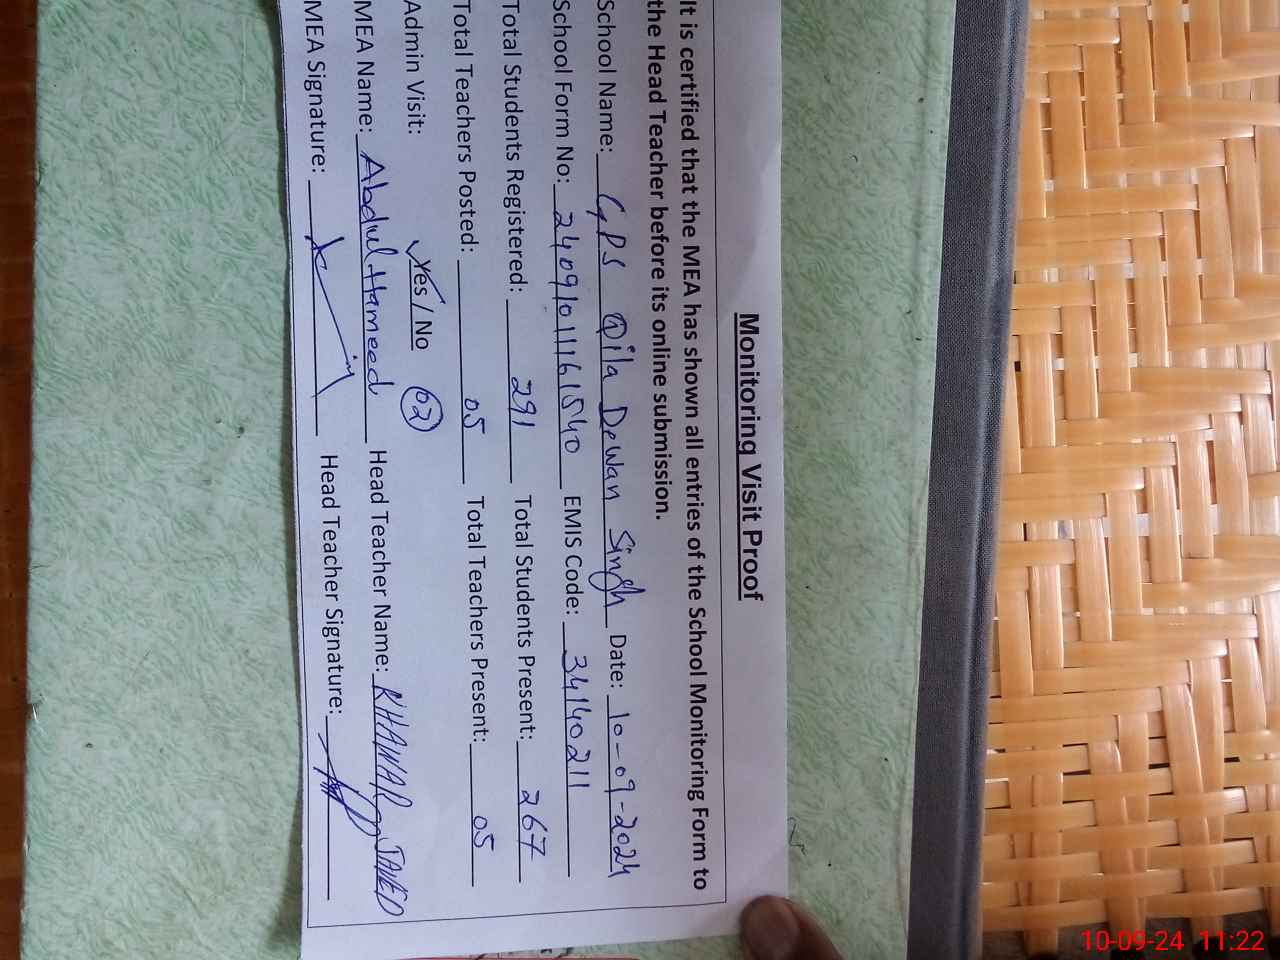 Monitoring Visit Proof
It is certified that the MEA has shown all entries of the School Monitoring Form to
the Head Teacher before its online submission.
School Name: GPS Qila Dewan Singh Date: 10-09-2024
School Form No: 24091011161540 EMIS Code: 34140211
Total Students Registered: 291 Total Students Present: 267
Total Teachers Posted: 05 Total Teachers Present: 05
Admin Visit: Yes / No 02
MEA Name: Abdul Hameed Head Teacher Name: KHAWAR JAVED
MEA Signature: Head Teacher Signature:
10-09-24 11:22